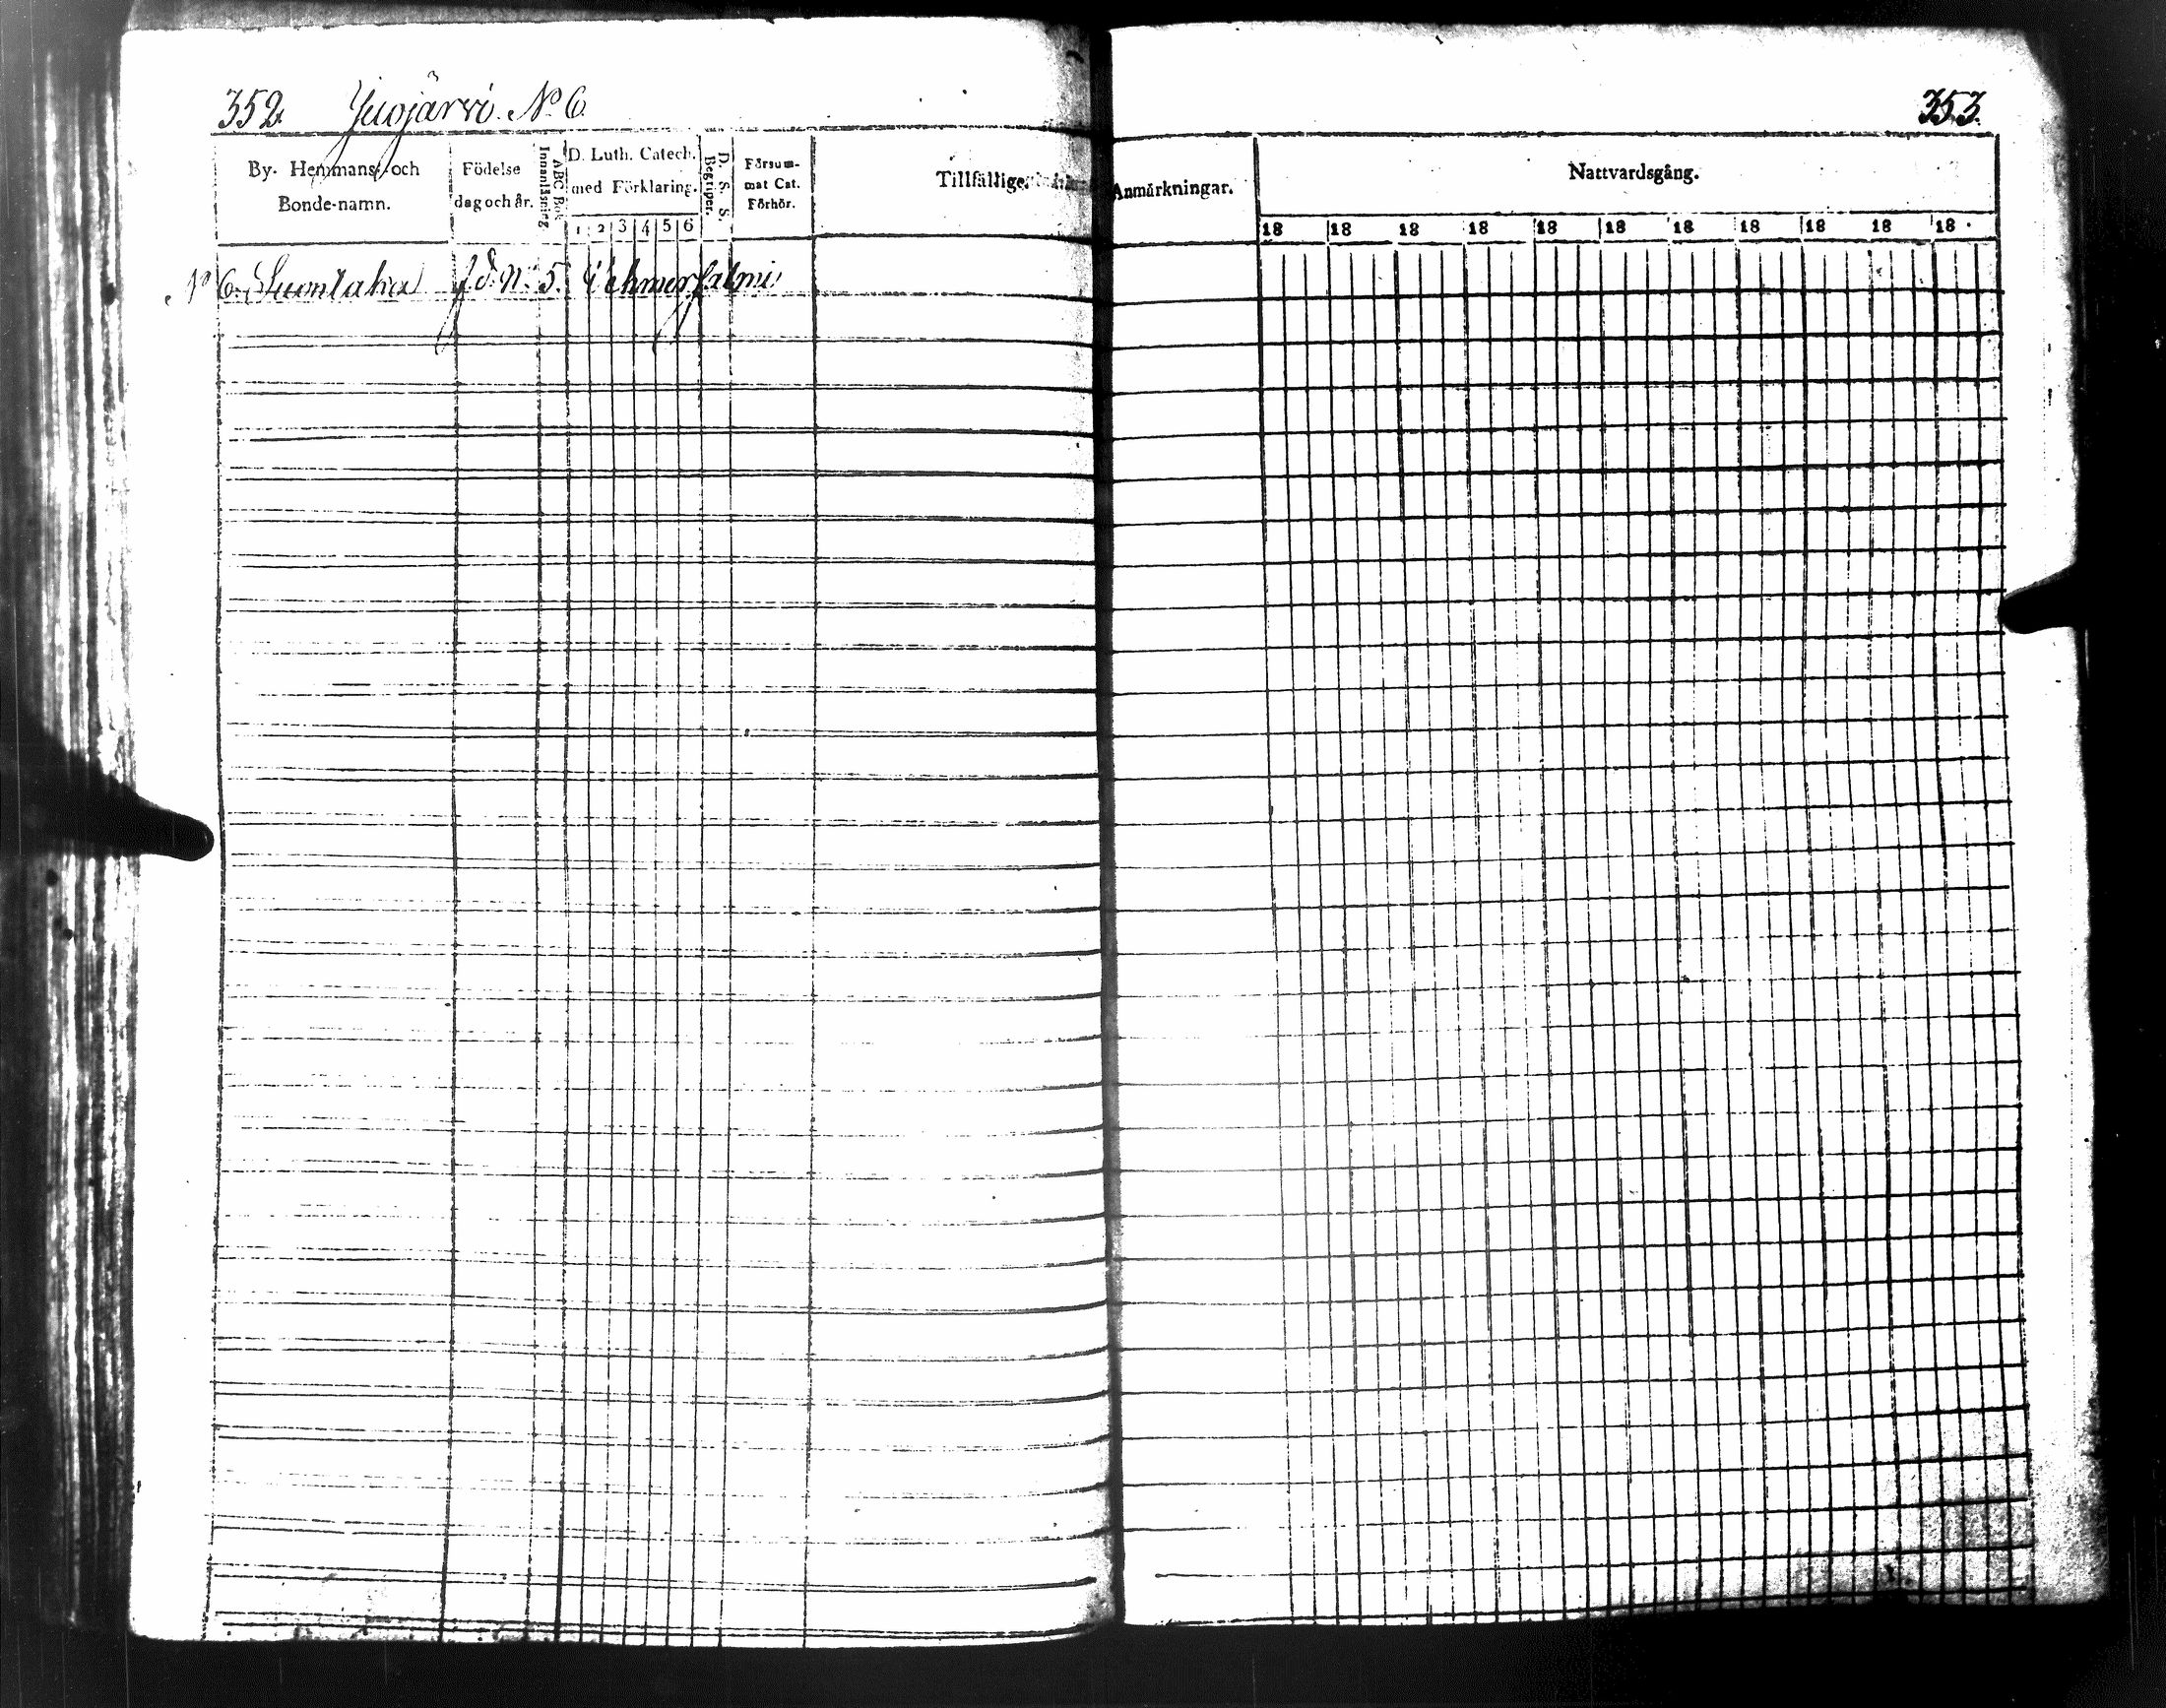 352 Juojärvi. No 6
353.
By- Hemmans- och
Bonde-namn.
Födelse
dag och år.
Innanläsning
ABC Bok
D. Luth. Catech.
med Förklaring.
1 2 3 4 5 6
D. S. S.
Begriper.
Försum-
mat Cat.
Förhör.
Tillfällige
Anmärkningar.
Nattvardsgång.
18 18 18 18 18 18 18 18 18 18 18
No 6. Suontaka No 5. Vehmersalmi